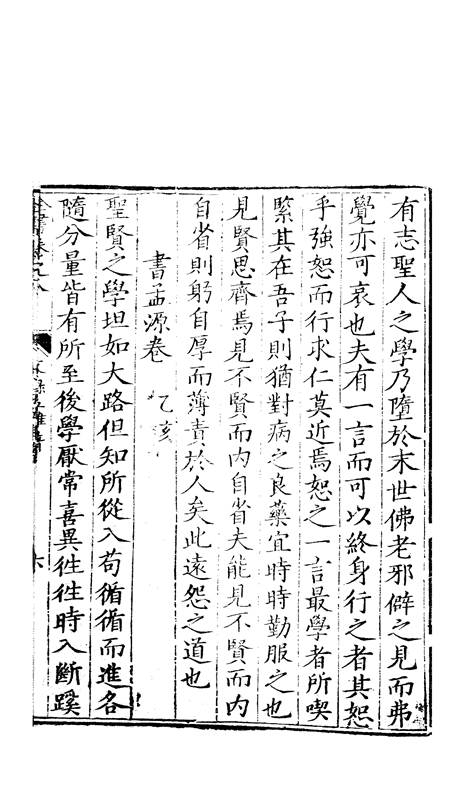 有志聖人之學乃墮於末世佛老邪僻之見而弗
覺亦可哀也夫有一言而可以終身行之者其恕
乎強恕而行求仁莫近焉恕之一言最學者所喫
緊其在吾子則猶對病之良藥宜時時勤服之也
見賢思齊焉見不賢而内自省夫能見不賢而内
自省則躬自厚而薄責於人矣此遠怨之道也
書孟源卷 乙亥
聖賢之學坦如大路但知所從入苟循循而進各
隨分量皆有所至後學厭常喜異徃徃時入斷蹊
六